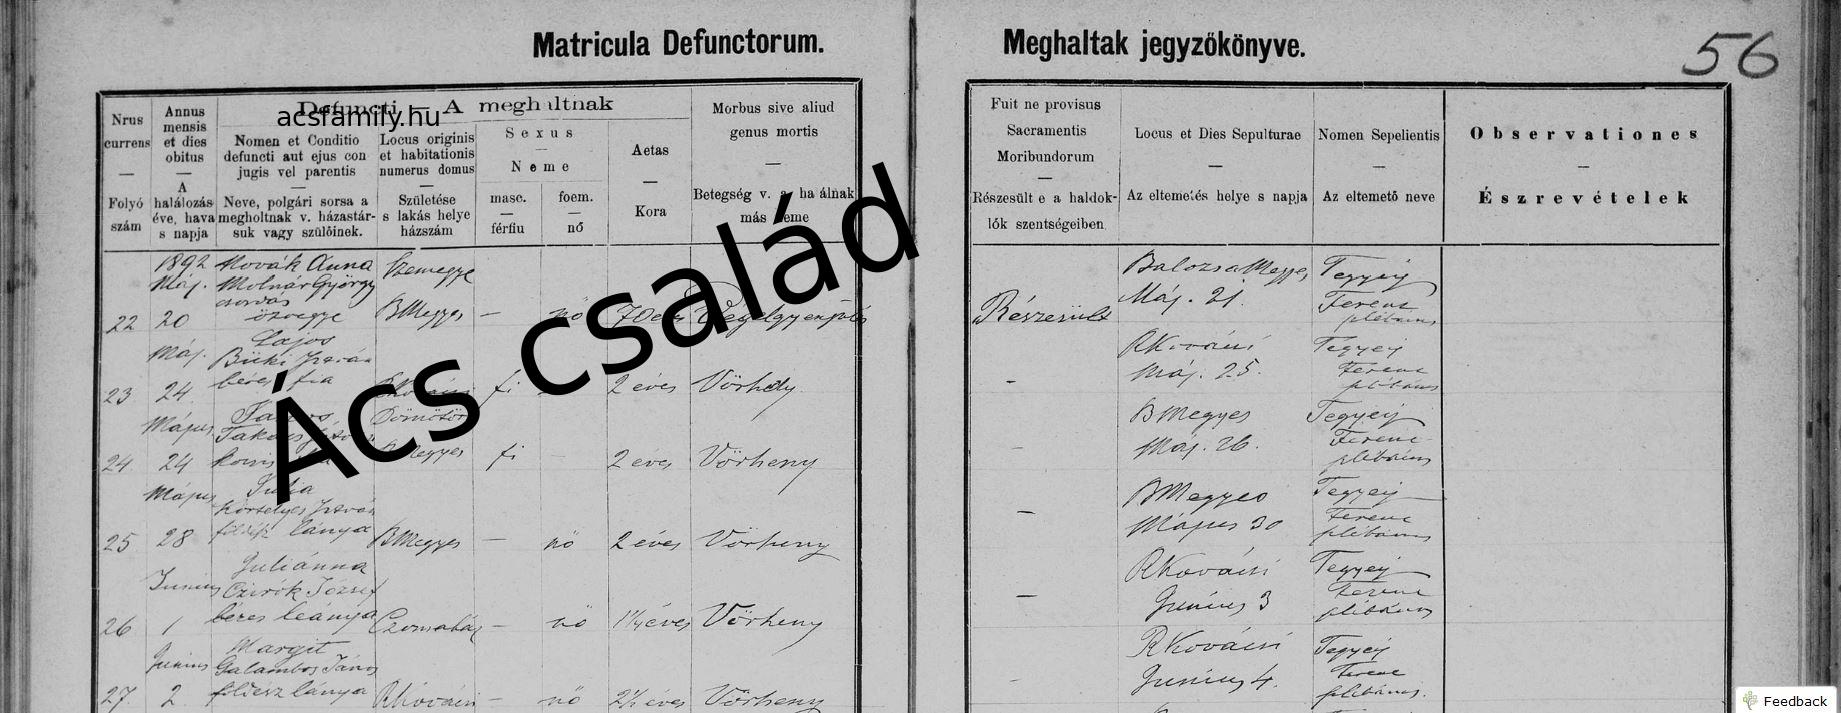 Matricula Defunctorum.
Meghaltak jegyzőkönyve.
56
Defuncti — A meghaltnak
acsfamily.hu
Nrus
currens
—
Folyó
szám
Annus
mensis
et dies
obitus
—
A
halálozás
éve, hava
s napja
Nomen et Conditio
defuncti aut ejus con
jugis vel parentis
—
Neve, polgári sorsa a
megholtnak v. házastár-
suk vagy szülőinek.
Locus originis
et habitationis
numerus domus
—
Születése
s lakás helye
házszám
Sexus
—
Neme
masc.
—
férfiu
foem.
—
nő
Aetas
—
Kora
Morbus sive aliud
genus mortis
—
Betegség v. a halálnak
más neme
Fuit ne provisus
Sacramentis
Moribundorum
—
Részesült e a haldok-
lók szentségeiben
Locus et Dies Sepulturae
—
Az eltemetés helye s napja
Nomen Sepelientis
—
Az eltemető neve
Observationes
—
Észrevételek
Ács család
22
1892
Máj.
20
Novák Anna
Molnár György
csordás
özvegye
Szemegye
BMegyes
—
nő
Végelgyengülés
Részesült
Máj. 21.
Tegyey
Ferenc
plébános
23
Máj.
24
Lajos
Büki István
béres fia
fi
2 éves
Vörheny
-
RKovácsi
Máj. 25.
Tegyey
Ferenc
plébános
24
Május
24
Takács
Dömötör
fi
2 eves
Vörheny
-
BMegyes
Máj. 26.
Tegyey
Ferenc
plébános
25
Május
28
Julia
István
lánya
BMegyes
—
nő
2 éves
Vörheny
—
BMegyes
Május 30
Tegyey
Ferenc
plébános
26
Junius
1
Juliánna
Czirók József
béres leánya
—
nő
1¼ éves
Vörheny
—
RKovácsi
Junius 3
Tegyey
Ferenc
plébános
27.
Junius
2.
Margit
Galambos János
földész lánya
RKovácsi
—
nő
2½ éves
Vörheny
-
RKovácsi
Junius 4.
Tegyey
Ferenc
plébános.
Feedback